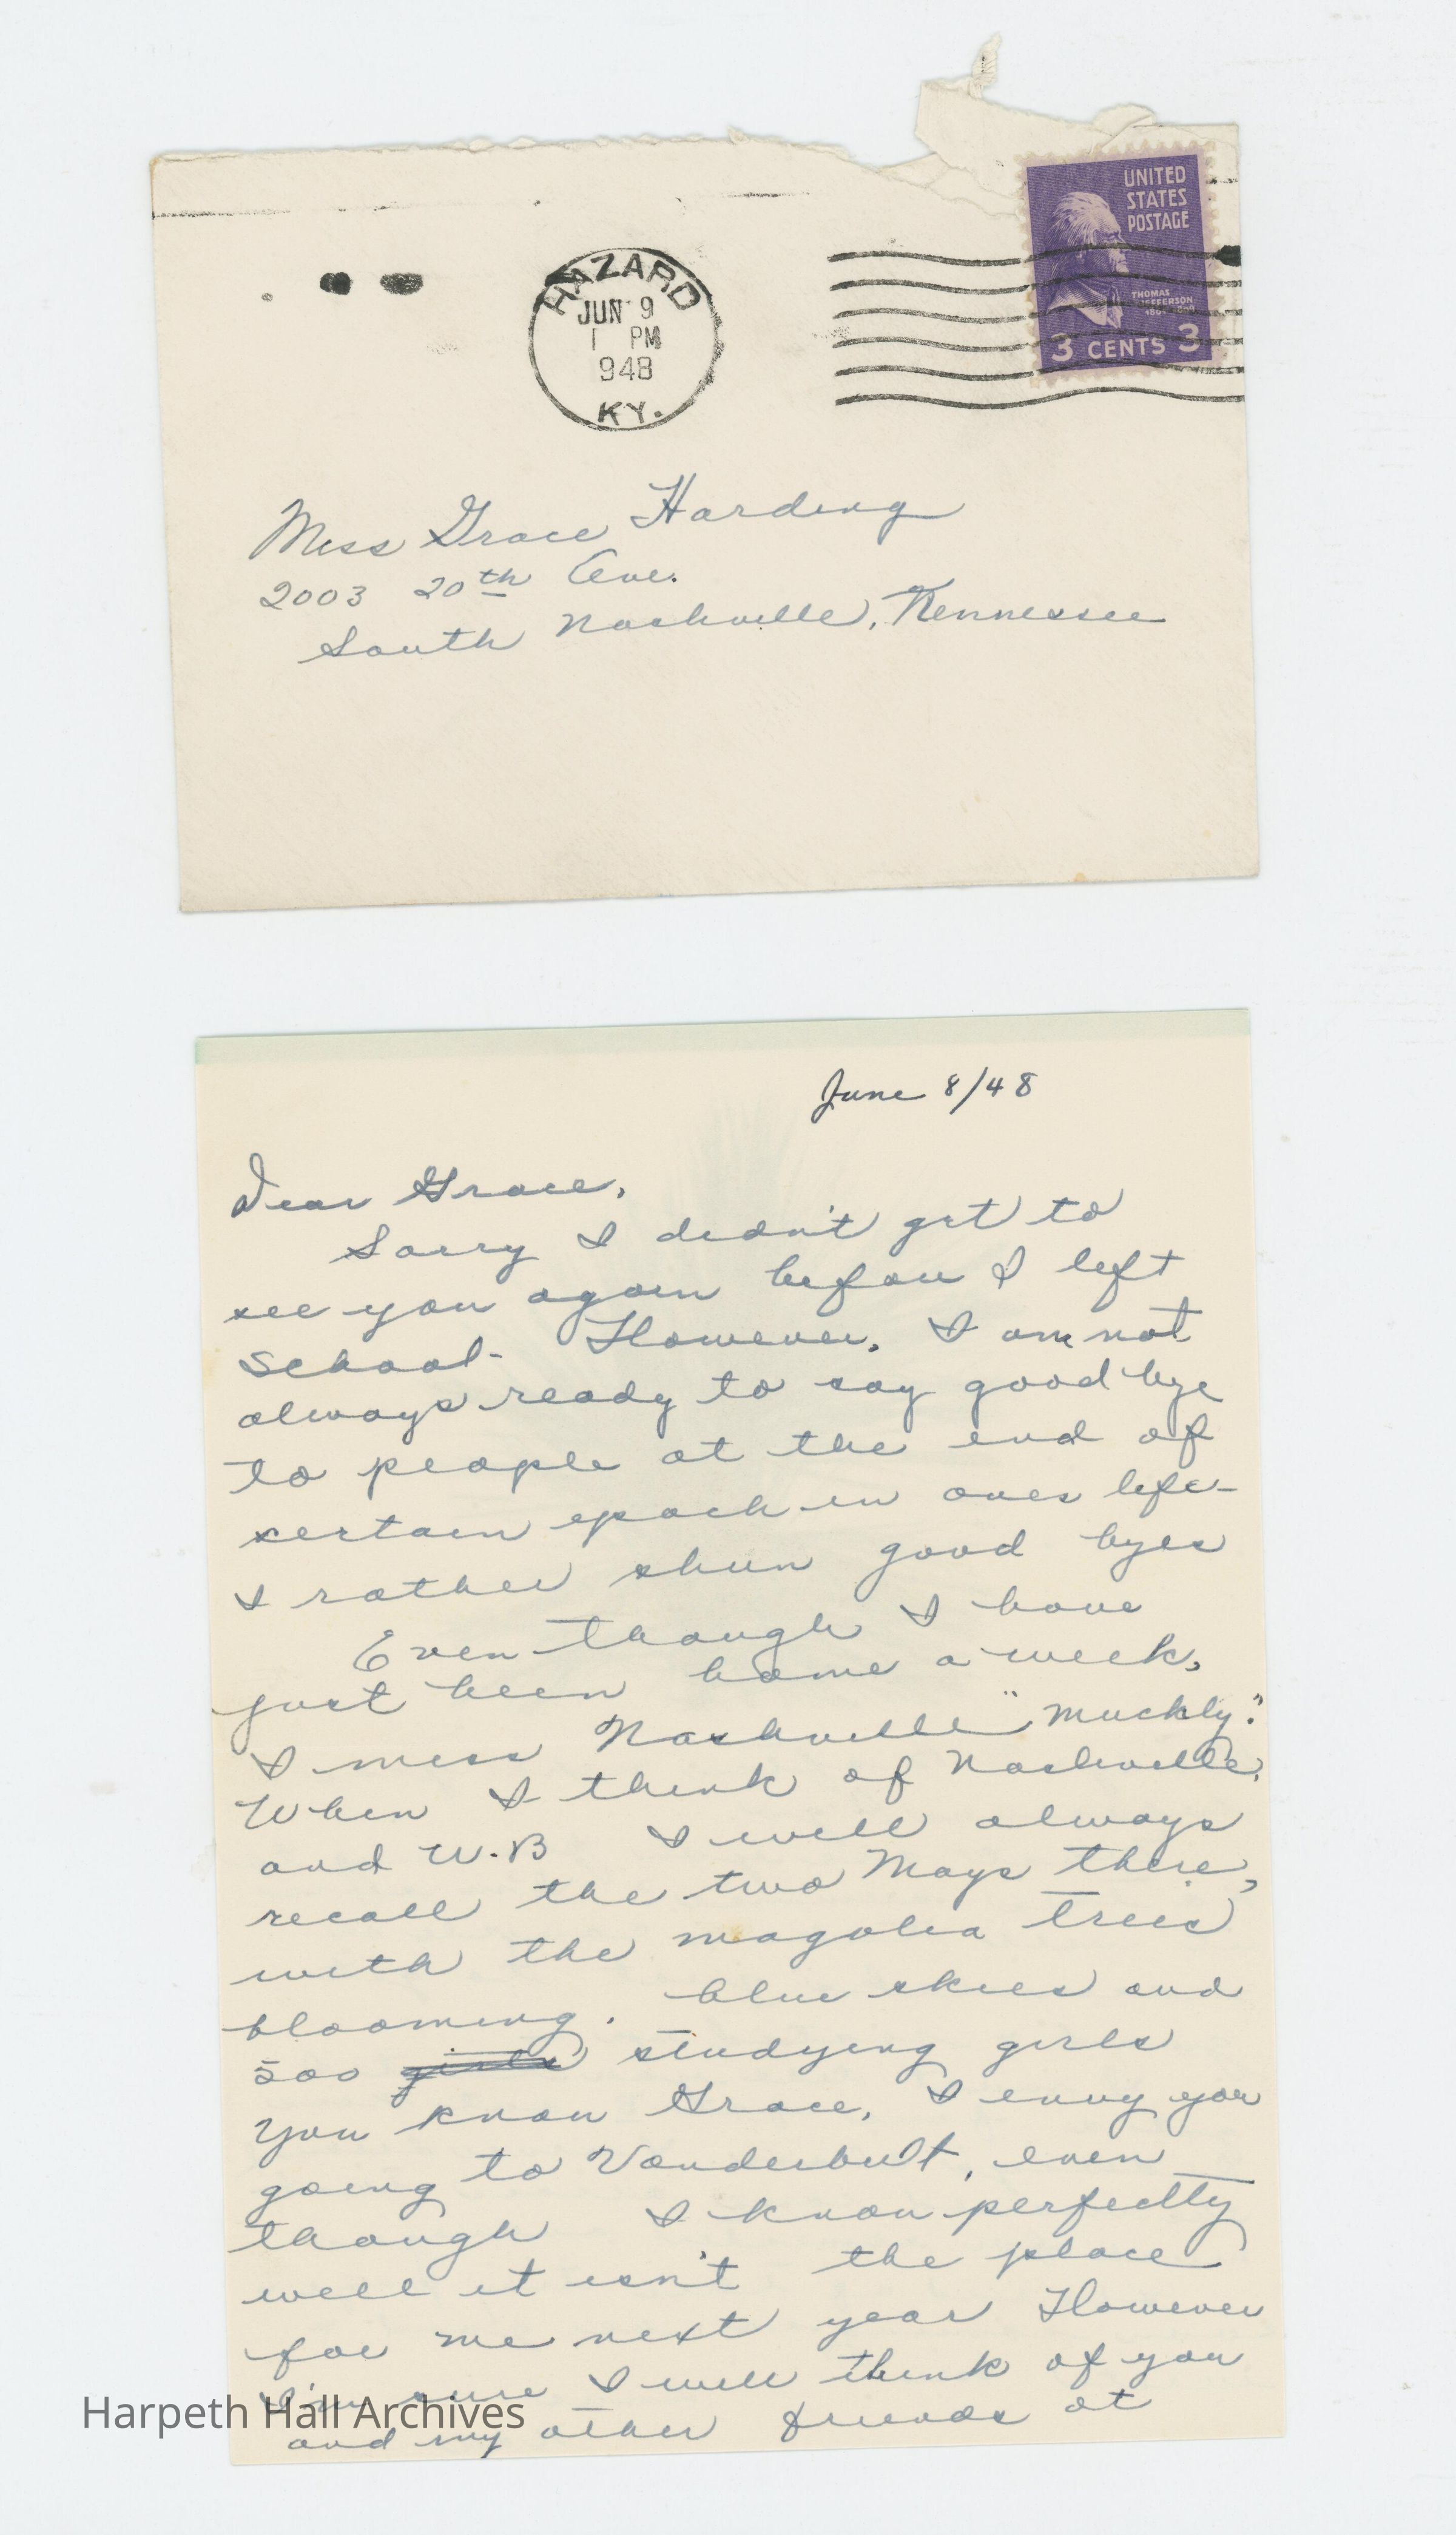 UNITED
STATES
POSTAGE
THOMAS
JEFFERSON
3 CENTS 3
HAZARD
JUN 9
1 PM
948
KY.
Miss Grace Harding
2003 20th Ave.
South Nashville, Tennessee
June 8/48
Dear Grace,
Sorry I didn't get to
see you again before I left
school- However, I am not
always ready to say good bye
to people at the end of
certain epoch in ones life-
I rather shun good byes
Even though I have
just been home a week,
I miss Nashville "muchly."
When I think of Nashville,
and W.B I will always
recall the two Mays there,
with the magolia trees
blooming. blue skies and
500 girls studying girls
You know Grace, I envy you
going to Vanderbult, even
though I know perfectly
well it isn't the place
for me next year However
I'm sure I will think of you
and my other friends at
Harpeth Hall Archives